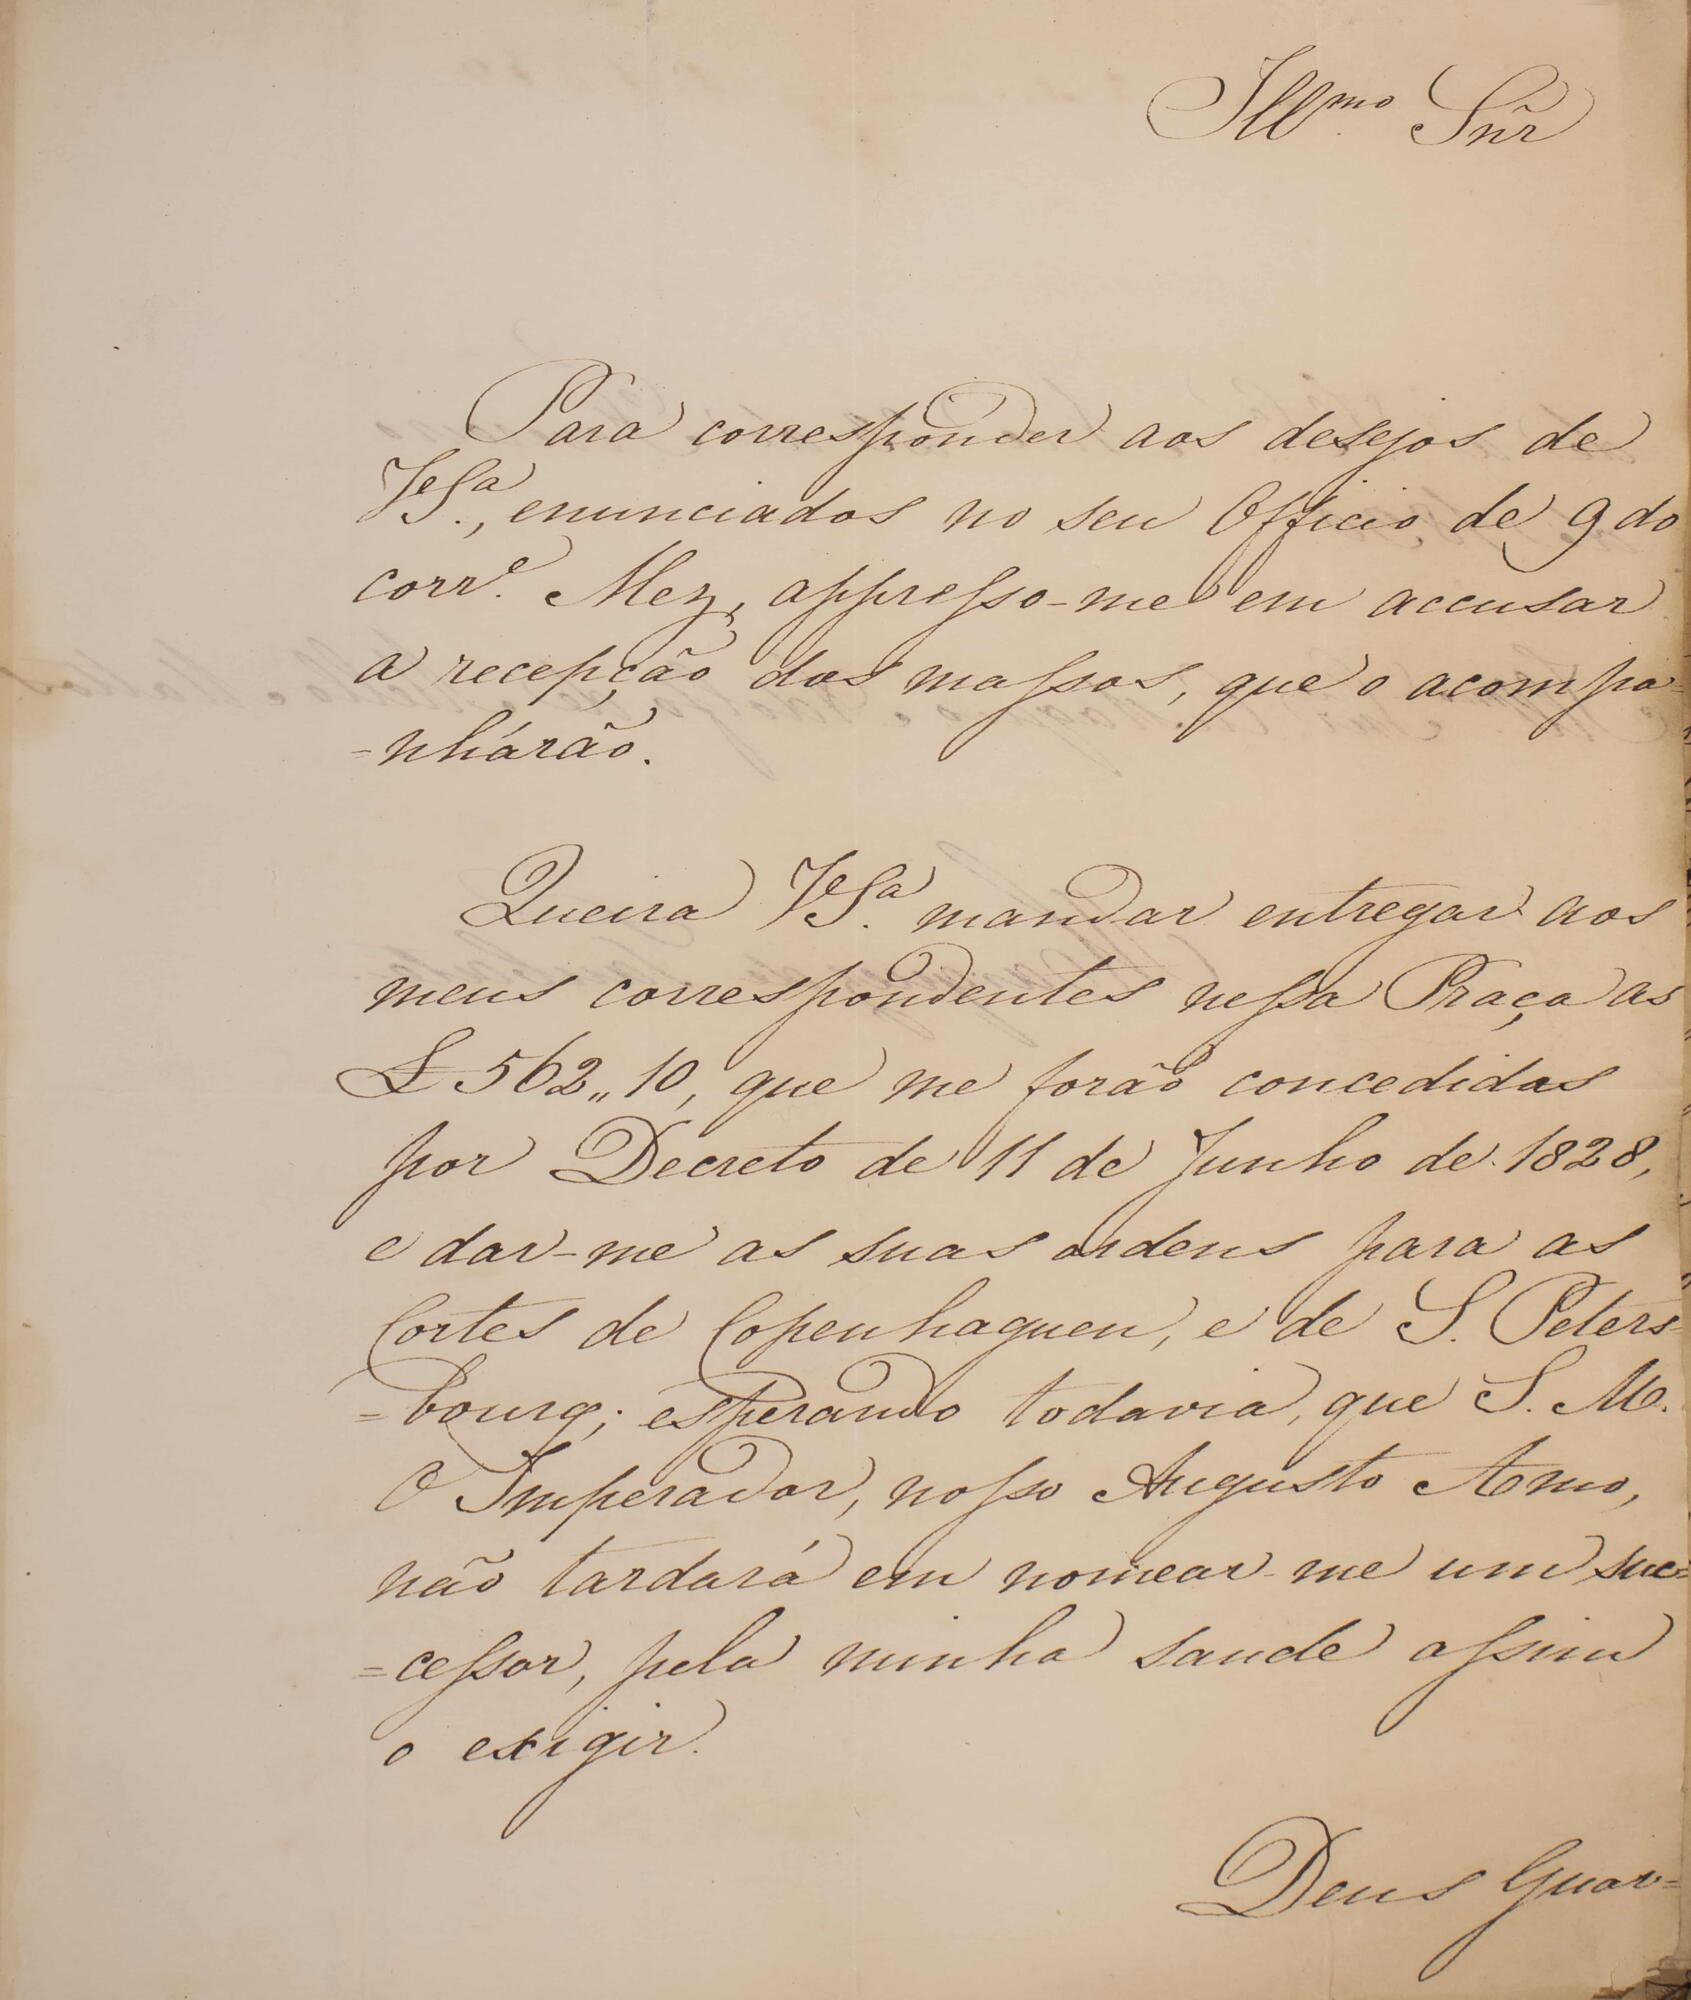 Illmo. Sñr
Para corresponder aos desejos de
VeSa., enunciados no seu Officio de 9 do
corre. Mez, appresso-me em accusar
a recepção dos massos, que o acompa-
-nhárão.
Queira VeSa. mandar entregar aos
meus correspondentes nessa Praça as
£ 562,, 10, que me forão concedidas
por Decreto de 11 de Junho de 1828,
e dar-me as suas ordens para as
Cortes de Copenhaguen, e de S. Peters=
=bourg; esperando todavia, que S. M.
O Imperador, nosso Augusto Amo,
não tardará em nomear-me um suc=
=cessor, pela minha saude assim
o exigir.
Deus Guar=